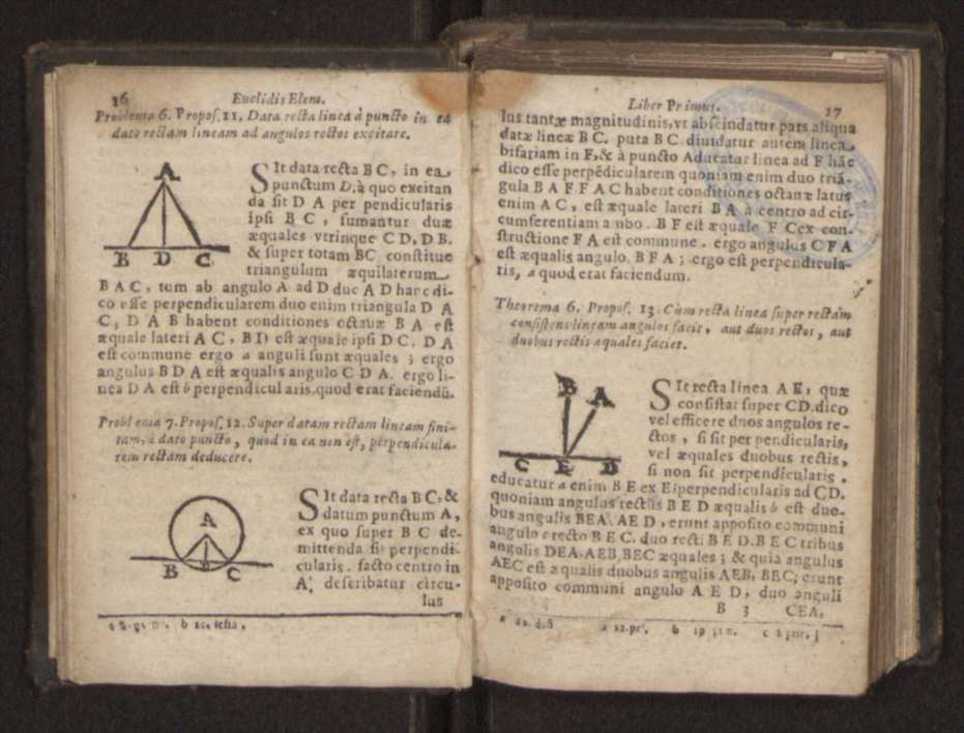 16 Euclidis Elem.
Problema 6. Propos. 11. Data recta linea à puncto in ea
dato rectam lineam ad angulos rectos excitare.
A
B D C
SIt data recta B C, in ea
punctum D, à quo excitan
da sit D A per pendicularis
ipsi B C, sumantur duæ
æquales vtrinque C D, D B.
& super totam BC constitue
triangulum æquilaterum
B A C, tum ab angulo A ad D duc A D hanc di-
co esse perpendicularem duo enim triangula D A
C, D A B habent conditiones octauæ B A est
æquale lateri A C, B D est æquale ipsi D C. D A
est commune ergo a anguli sunt æquales ; ergo
angulus B D A est æqualis angulo C D A. ergo li-
nea D A est b perpendicul aris. quod erat faciendũ.
Problema 7. Propos. 12. Super datam rectam lineam fini-
tam, à dato puncto, quod in ea non est, perpendicula-
rem rectam deducere.
A
B C
SIt data recta B C, &
datum punctum A,
ex quo super B C de-
mittenda sit perpendi-
cularis. facto centro in
A, describatur circu-
lus
Liber Primus. 17
lus tantæ magnitudinis, vt abscindatur pars aliqua
datæ lineæ B C. puta B C diuidatur autem linea
bifariam in F, & à puncto A ducatur linea ad F hãc
dico esse perpẽdicularem quoniam enim duo triã-
gula B A F F A C habent conditiones octauæ latus
enim A C, est æquale lateri B A à centro ad cir-
cumferentiam ambo. B F est æquale F C ex con-
structione F A est commune. ergo angulus C F A
est æqualis angulo. B F A ; ergo est perpendicula-
ris, a quod erat faciendum.
Theorema 6. Propos. 13. Cùm recta linea super rectam
consistens lineam angulos facit, aut duos rectos, aut
duobus rectis æquales faciet.
B A
C E D
SIt recta linea A E, quæ
consistat super CD. dico
vel efficere duos angulos re-
ctos, si sit per pendicularis,
vel æquales duobus rectis,
si non sit perpendicularis.
educatur a enim B E ex E perpendicularis ad CD.
quoniam angulus rectus B E D æqualis b est duo-
bus angulis BEA. AE D, erunt apposito communi
angulo c recto B E C. duo recti B E D. B E C tribus
angulis DEA. AEB, BEC æquales ; & quia angulus
AEC est æqualis duobus angulis AEB, BEC; erunt
apposito communi angulo A E D, duo anguli
B 3 CEA,